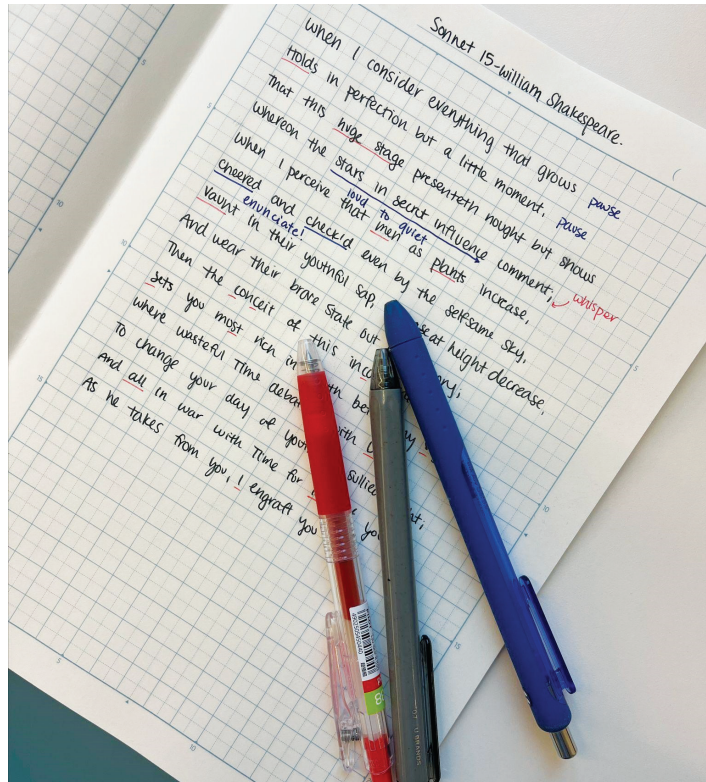 Sonnet 15-William Shakespeare.
When I consider everything that grows pause
Holds in perfection but a little moment, pause
That this huge stage presenteth nought but shows
Whereon the stars in secret influence comment, whisper
loud to quiet
When I perceive that men as plants increase,
Cheered and check'd even by the selfsame sky,
enunciate!
Vaunt in their youthful sap, at height decrease,
And wear their brave state out
Then the conceit of this
Sets you most rich in
Where wasteful Time with
To change your day of sullied
And all in war with Time for
As he takes from you, I engraft you